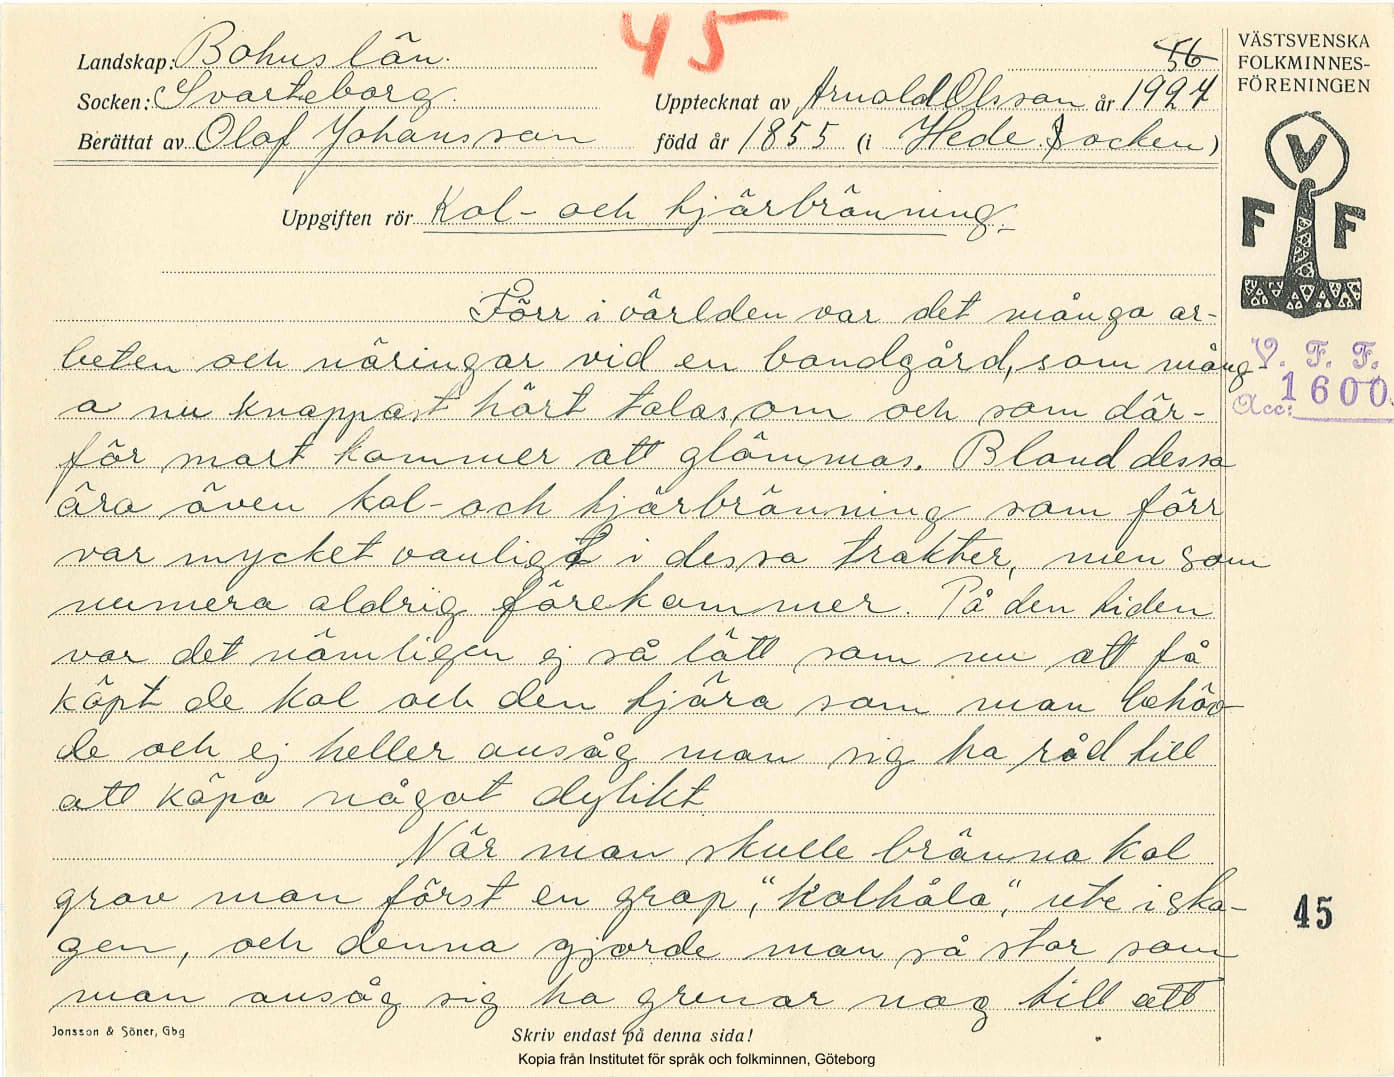 45
Landskap: Bohuslän.
56
Socken: Svarteborg.
Upptecknat av Arnold Olsson år 1927
Berättat av Olof Johansson
född år 1855 (i Hede Socken)
Uppgiften rör Kol- och tjärbränning.
Förr i världen var det många ar-
beten och näringar vid en bondgård, som mång
a nu knappast hört talas om och som där-
för snart kommer att glömmas. Bland dessa
ära även kol- och tjärbränning som förr
var mycket vanligt i dessa trakter, men som
numera aldrig förekommer. På den tiden
var det nämligen ej så lätt som nu att få
köpt de kol och den tjära som man behöv
de och ej heller ansåg man sig ha råd till
att köpa något dylikt
När man skulle bränna kol
grov man först en grop, "kolhåla", ute i sko-
gen, och denna gjorde man så stor som
man ansåg sig ha grenar nog till att
Jonsson & Söner, Gbg
Skriv endast på denna sida!
Kopia från Institutet för språk och folkminnen, Göteborg
VÄSTSVENSKA
FOLKMINNES-
FÖRENINGEN
V
F F
V. F. F.
Acc: 1600.
45